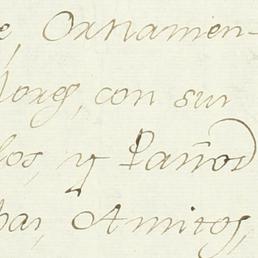 e, Ornamen-
con sus
los, y Paños
bas, Amitos,